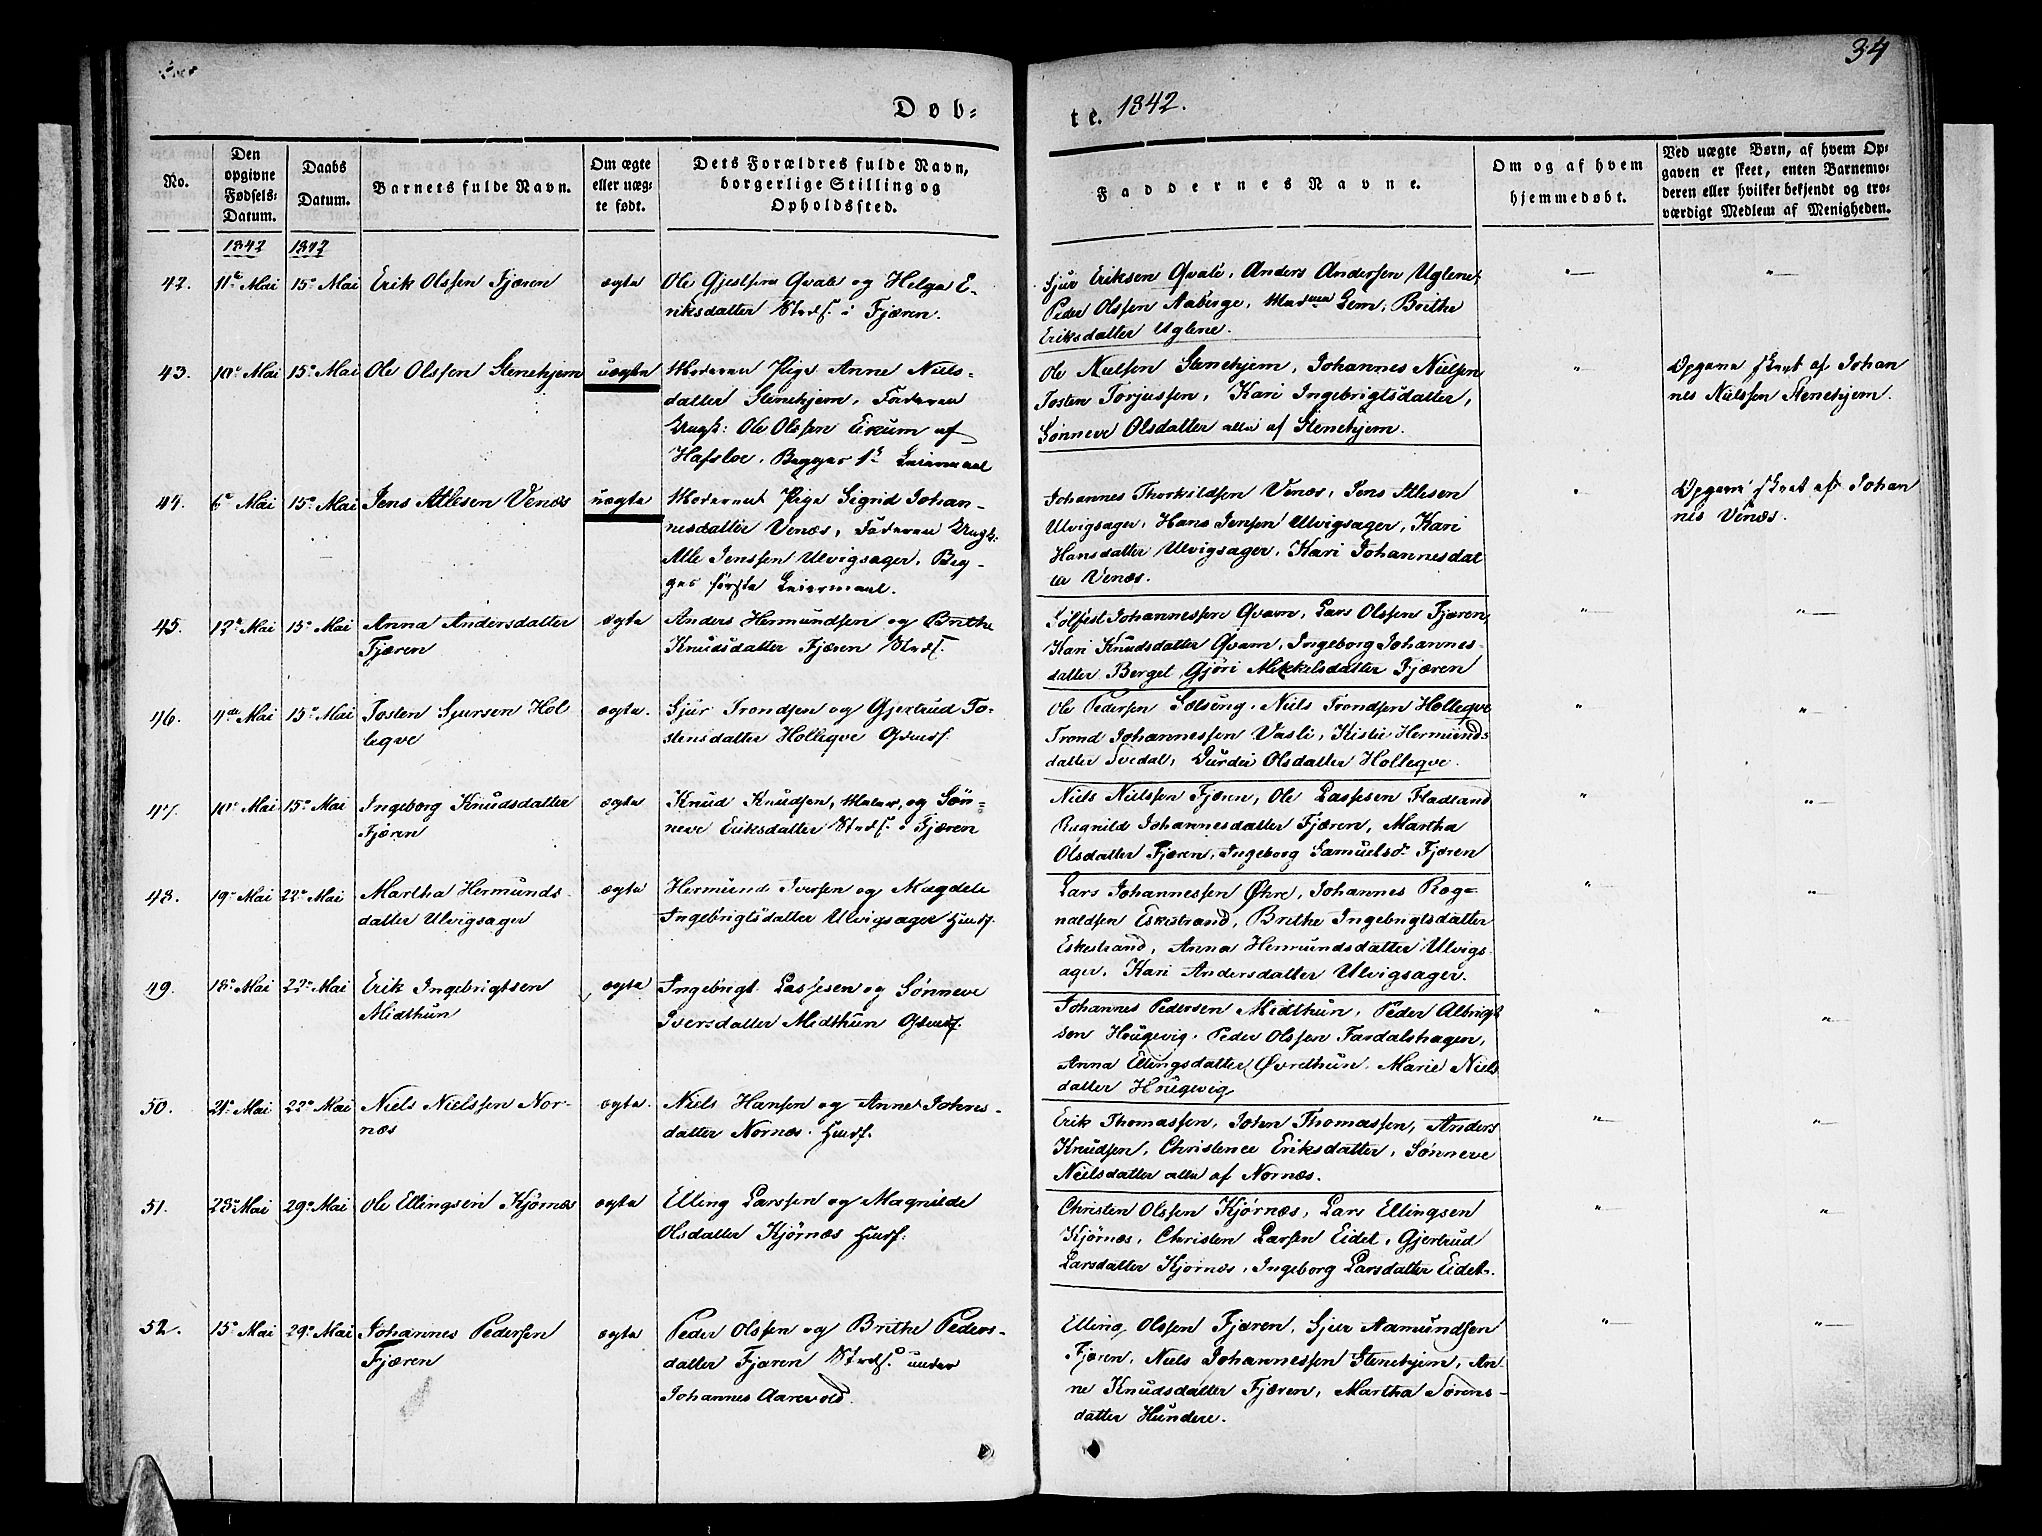 34
Døb-
te. 1842.
No.
Den
opgivne
Fødsels-
Datum.
Daabs
Datum.
Barnets fulde Navn.
Om ægte
eller uæg-
te født.
Dets Forældres fulde Navn,
borgerlige Stilling og
Opholdssted.
Faddernes Navne.
Om og af hvem
hjemmedøbt.
Ved uægte Børn, af hvem Op-
gaven er skeet, enten Barnemo-
deren eller hvilket bekjendt og tro-
værdigt Medlem af Menigheden.
1842 1842
42. 11te Mai 15e Mai Erik Olssen Fjæren ægte
Ole Gjestsen Qvale og Helga E-
riksdatter Strds. i Fjæren.
Sjur Eriksen Qvale, Anders Andersen Uglene,
Peder Olssen Aaberge, Mad Lem, Brithe
Eriksdatter Uglene.
43. 10e Mai 15e Mai Ole Olssen Stenehjem uægte
Moderen Pige Anne Niels-
datter Stenehjem, Faderen
Ungk: Ole Olssen Eikum af
Hafsloe. Begges 1e Leiermaal
Ole Nielsen Stenehjem, Johannes Nielsen
Tosten Torjussen, Kari Ingebrigtsdatter,
Sønneve Olsdatter alle af Stenehjem.
Opgave skeet af Johan
nes Nielssen Stenehjem.
44. 6e Mai 15e Mai Jens Atlesen Venæs uægte
Moderen Pige Sigrid Johan-
nesdatter Venæs, Faderen Ungk:
Atle Jenssen Ulvigsager, Beg-
ges første Leiermaal.
Johannes Thorkildsen Venæs, Jens Atlesen
Ulvigsager, Hans Jensen Ulvigsager, Kari
Hansdatter Ulvigsager, Kari Johannesdat
ter Venæs.
Opgave skeet af Johan
nes Venæs.
45. 12e Mai 15e Mai Anna Andersdatter
Fjæren
ægte
Anders Hermundsen og Brithe
Knudsdatter Fjæren Strds.
Johannessen Qvam, Lars Olssen Fjæren,
Kari Knudsdatter Qvam, Ingeborg Johannes-
datter Berget, Gjøri Mikkelsdatter Fjæren
46. 4de Mai 15e Mai Tosten Sjursen Hol
leqve
ægte.
Sjur Trondsen og Gjertrud To-
stensdatter Holleqve Gdmdf.
Ole Pedersen Solseng, Niels Trondsen Holleqve
Trond Johannessen Vasli, Kistie Hermunds-
datter Svedal, Durdei Olsdatter Holleqve.
47. 10e Mai 15e Mai Ingeborg Knudsdatter
Fjæren
ægte
Knud Knudsen, Maler, og Søn-
neve Eriksdatter Strds. i Fjæren
Niels Nielssen Fjæren, Ole Lassesen Fladland
Ragnild Johannesdatter Fjæren, Martha
Olsdatter Fjæren, Ingeborg Samuelsdr Fjæren
48. 19e Mai 22e Mai Martha Hermunds-
datter Ulvigsager
ægte
Hermund Iversen og Magdele
Ingebrigtsdatter Ulvigsager Husf.
Lars Johannessen Øhre, Johannes Rog-
naldsen Eskestrand, Brithe Ingebrigtsdatter
Eskestrand, Anna Hermundsdatter Ulvigs-
ager, Kari Andersdatter Ulvigsager.
49. 18e Mai 22e Mai Erik Ingebrigtsen
Midthun
ægte
Ingebrigt Lassesen og Sønneve
Iversdatter Midthun Gdmdf.
Johannes Pedersen Midthun, Peder Albrigt
sen Haugevig, Peder Olssen Fardalshagen,
Anna Ellingsdatter Øvrethun, Marie Niels
datter Haugevig
50. 21e Mai 22e Mai Niels Nielssen Nor-
næs
ægte.
Niels Hansen og Anne Johns-
datter Nornæs. Husf.
Erik Thomassen, Johen Thomassen, Anders
Knudsen, Christence Eriksdatter, Sønneve
Nielsdatter alle af Nornæs.
51. 28e Mai 29e Mai Ole Ellingsen Kjørnæs ægte
Elling Larssen og Magnilde
Olsdatter Kjørnæs Husf.
Christen Olssen Kjørnæs, Lars Ellingsen
Kjørnæs, Christen Larsen Eidet, Gjertrud
Larsdatter Kjørnæs, Ingeborg Larsdatter Eidet.
52. 15e Mai 29e Mai Johannes Pedersen
Fjæren
ægte
Peder Olssen og Brithe Peders-
datter Fjæren Strds. under
Johannes Aarevold.
Elling Olssen Fjæren, Sjur Aamundsen
Fjæren, Niels Johannessen Stenehjem, An-
ne Knudsdatter Fjæren, Martha Sørens-
datter Hundere.